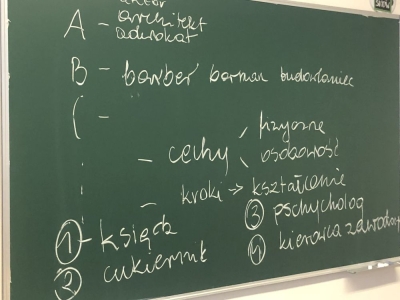 aktor
A - architekt
adwokat
B - barber barman budowlaniec
C -
- cechy fizyczne
osobowość
- kroki → kształcenie
① - ksiądz
② cukiernik
③ pschycholog
④ kierowca zawodowy